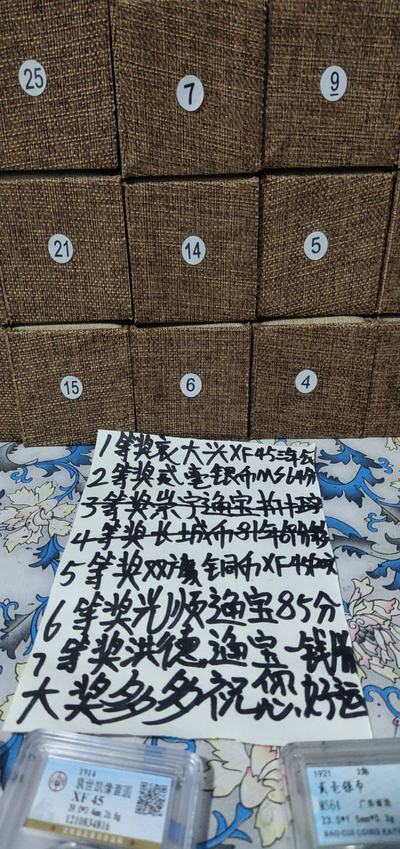 25
7
9
21
14
5
15
6
4
1等奖袁大头XF45三年
2等奖贰毫银币MS64分
3等奖崇宁通宝折十
4等奖长城币81年
5等奖双旗铜币XF45
6等奖光顺通宝85分
7等奖洪德通宝一钱
大奖多多祝您好运
1914
XF 45
1210834816
1921
贰毫银币
MS64 广东省造